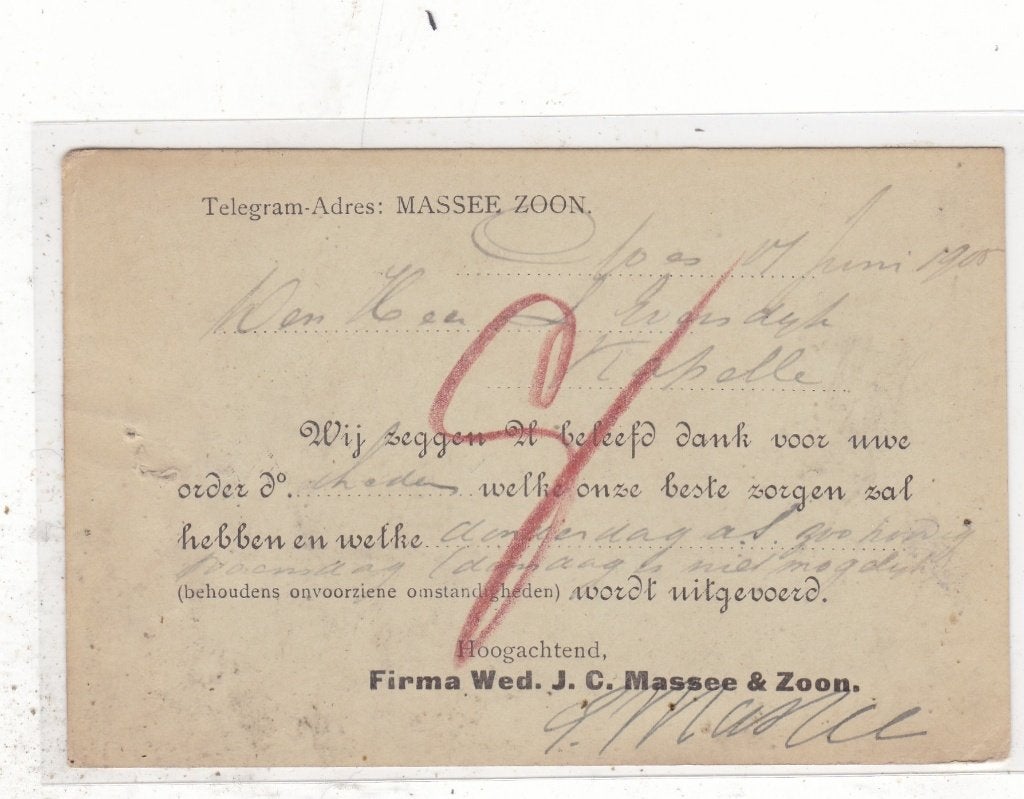 Telegram-Adres: MASSEE ZOON.
Goes 17 Juni 1905
Den Heer J. Eversdijk
Kapelle
Wij zeggen U beleefd dank voor uwe
order do. heden welke onze beste zorgen zal
hebben en welke donderdag a.s.
Woensdag (dinsdag is niet mogelijk)
(behoudens onvoorziene omstandigheden) wordt uitgevoerd.
Hoogachtend,
Firma Wed. J. C. Massee & Zoon.
Massee